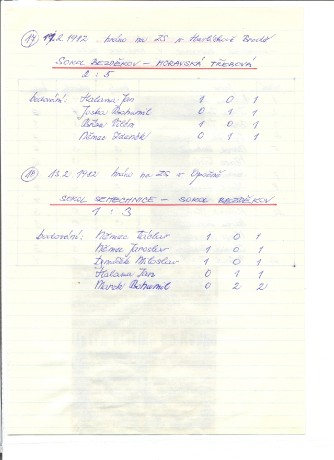 17 12.2.1982 hráno na ZS v Havlíčkově Brodě
SOKOL BEZDĚKOV - MORAVSKÁ TŘEBOVÁ
2 : 5
bodování: Halama Jan 1 0 1
Joska Bohumil 0 1 1
1 0 1
Němec Zdeněk 0 1 1
18 13.2.1982 hráno na ZS v Opočně
SOKOL SEMECHNICE - SOKOL BEZDĚKOV
1 : 3
bodování: Němec Václav 1 0 1
Němec Jaroslav 1 0 1
Miloslav 1 0 1
Halama Jan 0 1 1
Marek Bohumil 0 2 2